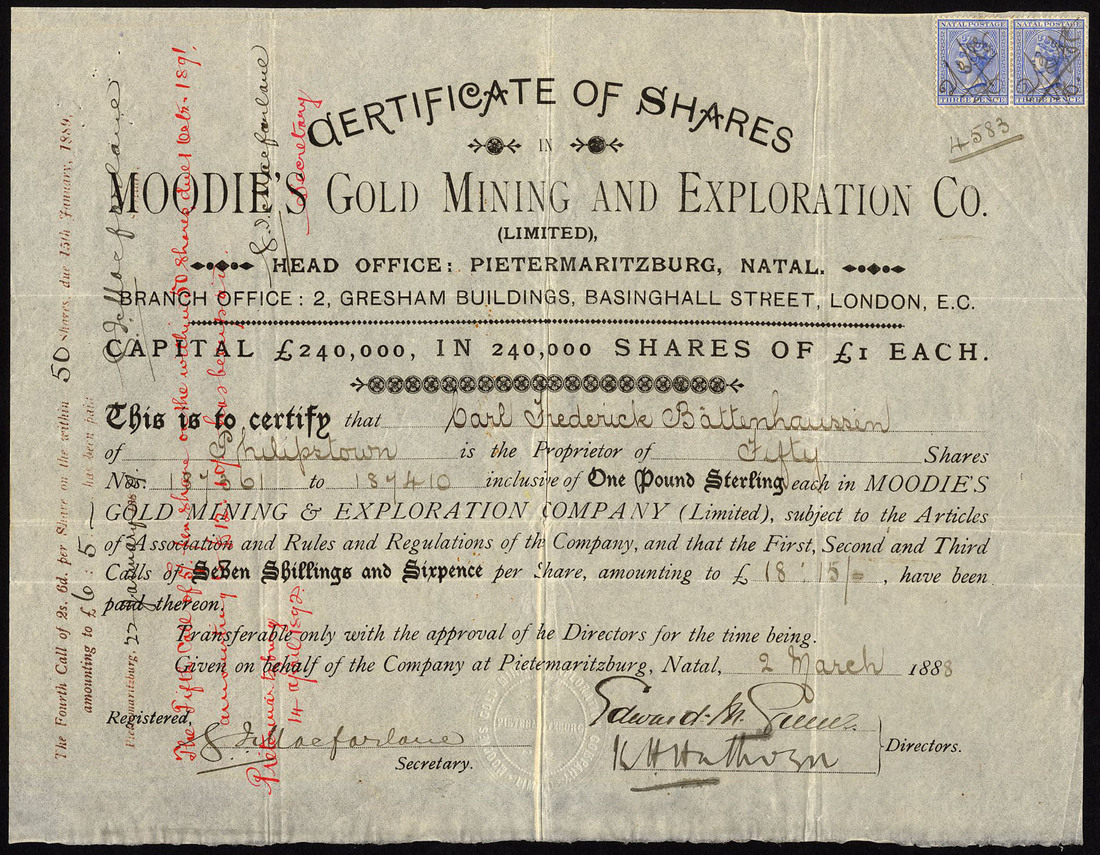 NATAL POSTAGE NATAL POSTAGE
THREE PENCE THREE PENCE
4583
CERTIFICATE OF SHARES
IN
MOODIE'S GOLD MINING AND EXPLORATION CO.
(LIMITED),
HEAD OFFICE: PIETERMARITZBURG, NATAL.
BRANCH OFFICE: 2, GRESHAM BUILDINGS, BASINGHALL STREET, LONDON, E.C.
CAPITAL £240,000, IN 240,000 SHARES OF £1 EACH.
This is to certify that Carl Frederick Båttenhaussen
of Philipstown is the Proprietor of Fifty Shares
Nos. to 187410 inclusive of One Pound Sterling each in MOODIE'S
GOLD MINING & EXPLORATION COMPANY (Limited), subject to the Articles
of Association and Rules and Regulations of the Company, and that the First, Second and Third
Calls of Seven Shillings and Sixpence per Share, amounting to £ 18 : 15/- , have been
paid thereon.
Transferable only with the approval of the Directors for the time being.
Given on behalf of the Company at Pietemaritzburg, Natal, 2 March 1888
Registered,
J. Macfarlane
Secretary.
Directors.
The Fourth Call of 2s. 6d. per Share on the within 50 Shares, due 15th January, 1889,
amounting to £6 : 5 : - has been paid
Pietermaritzburg, 22 January
Macfarlane
The Fifth Call of share on the within 50 shares due 1 Octbr. 1891
amounting to has been paid
Pietermaritzburg
14 April 1892
J. Macfarlane
Secretary